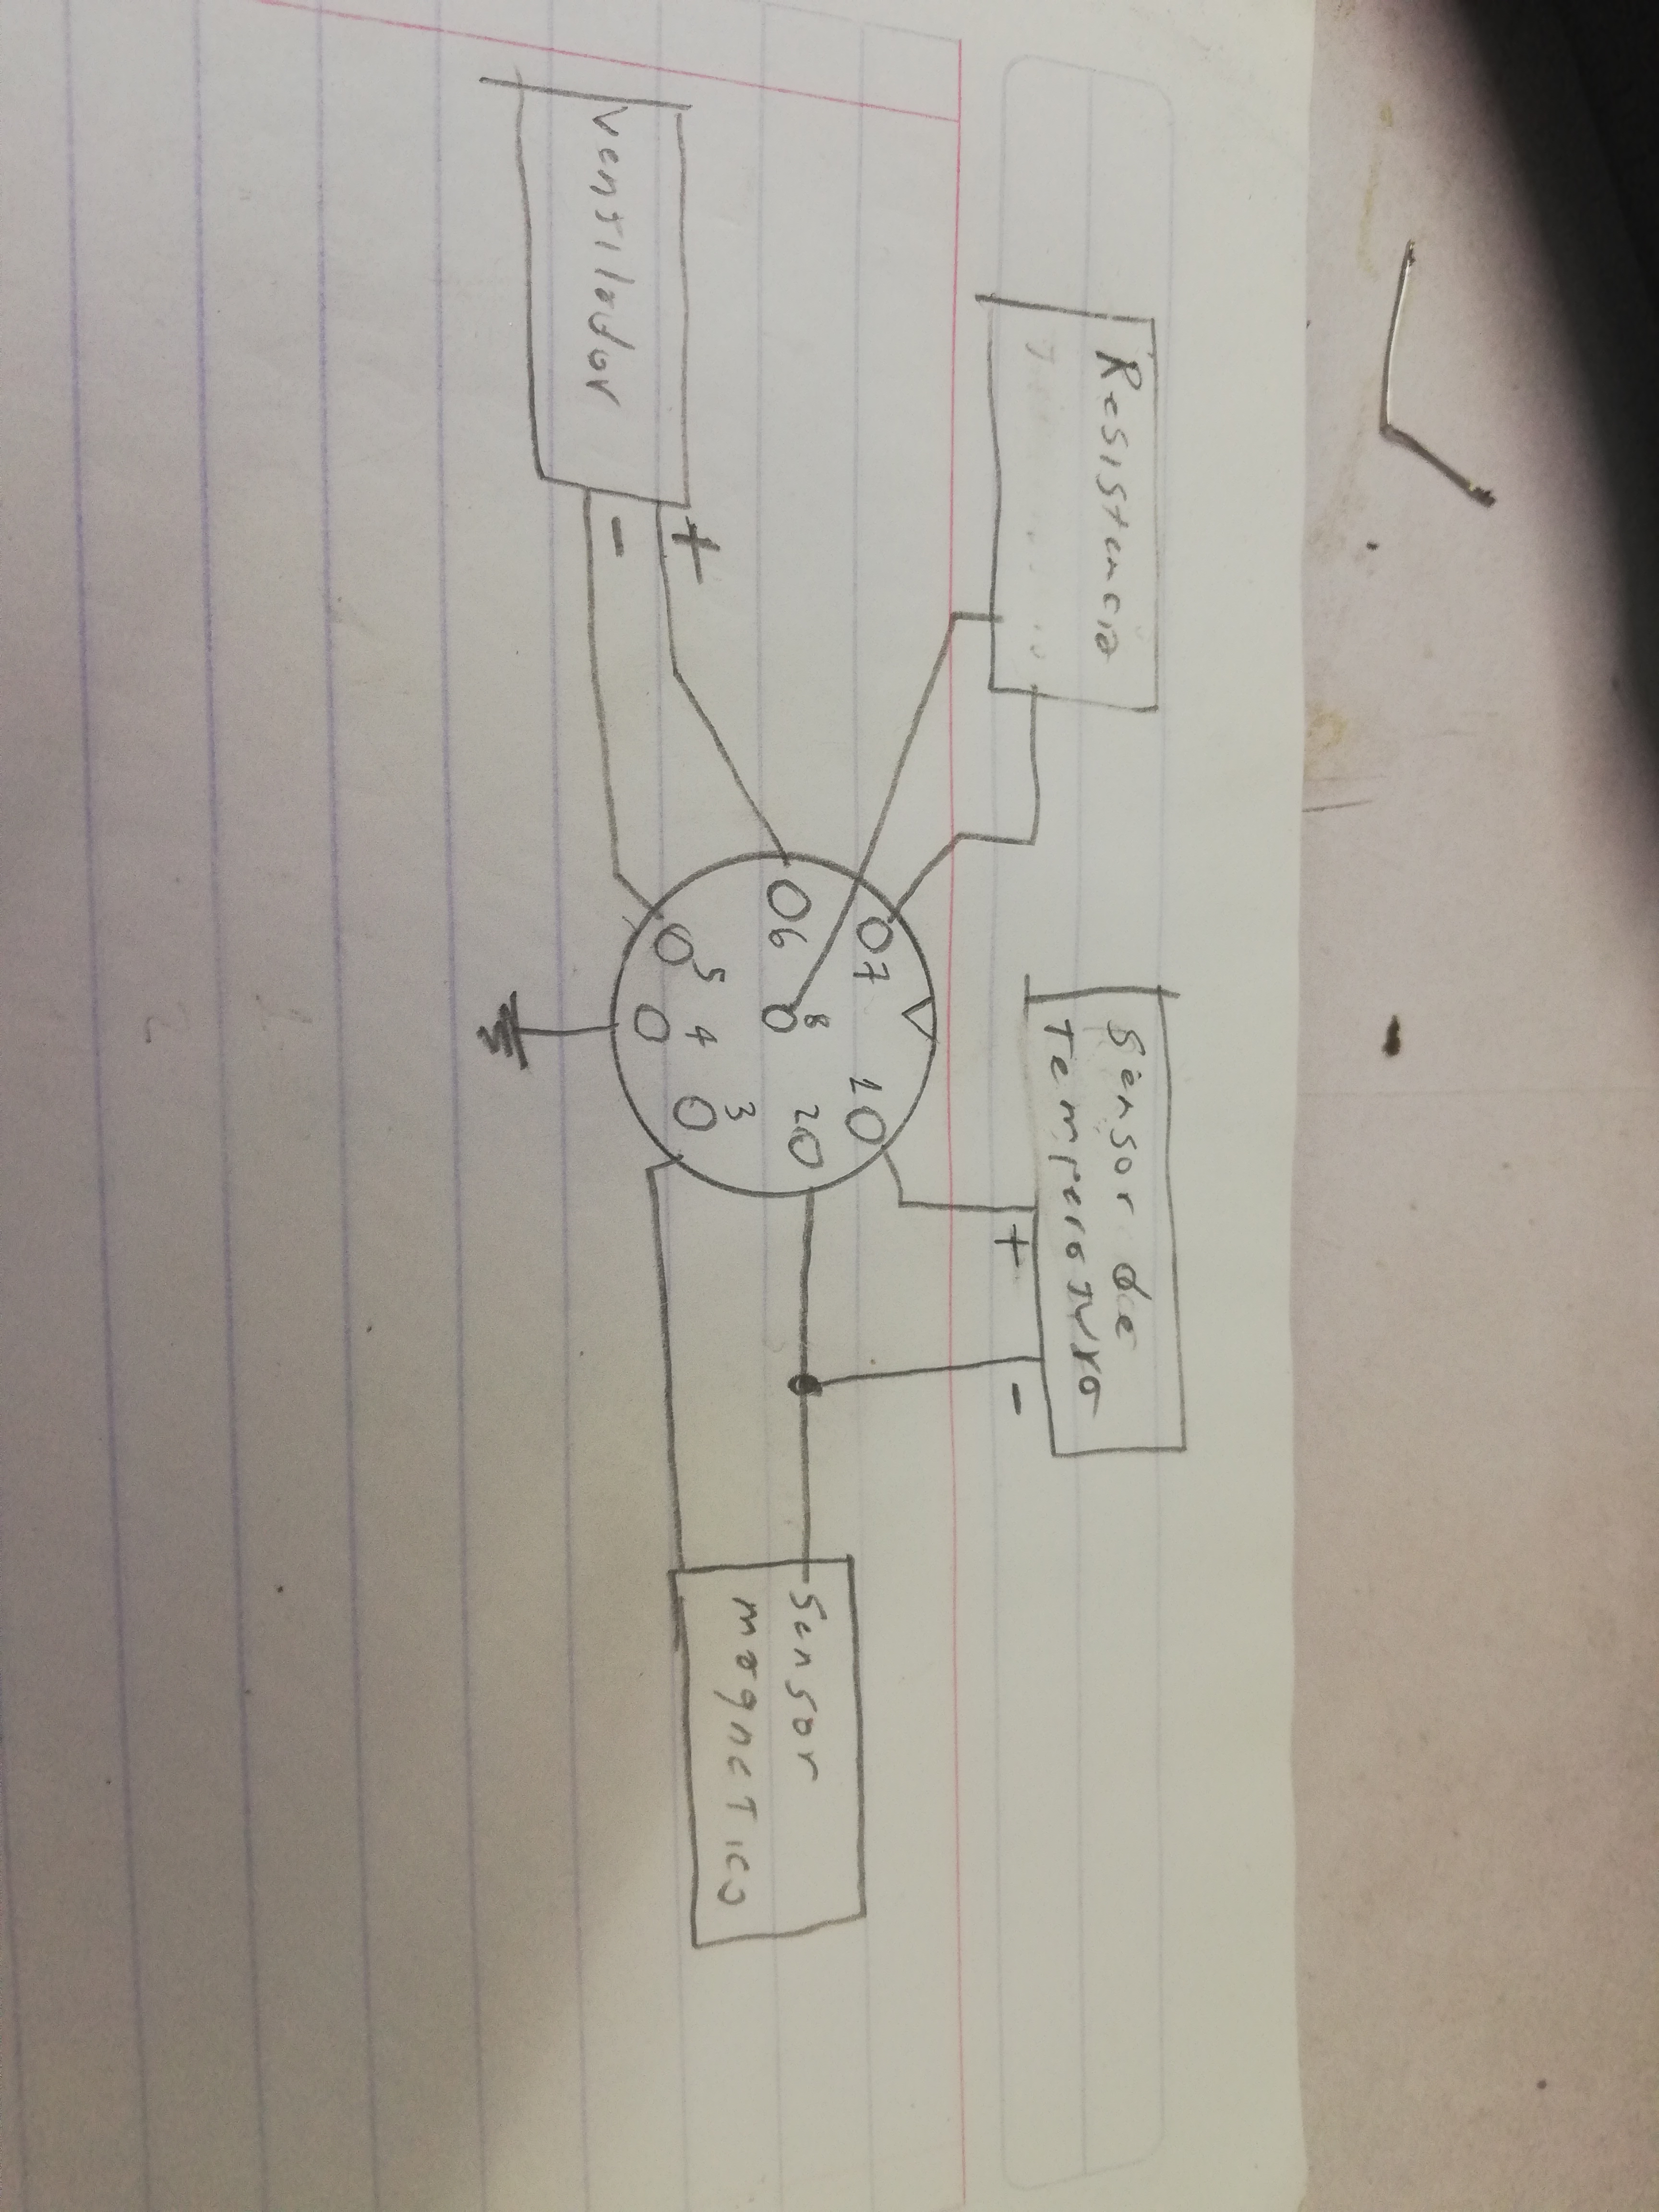 Resistencia
Sensor de
Temperatura
+ -
7 1
8
6 2
3
5 4
Sensor
magnetico
+
ventilador
-